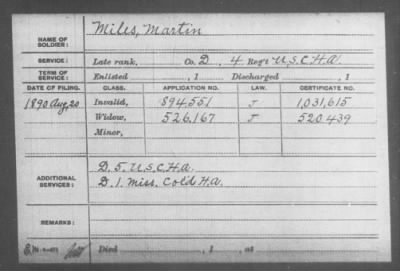 NAME OF SOLDIER: Miles, Martin
SERVICE: Late rank, Co. D, 4 Reg't U.S.C.H.A.
TERM OF SERVICE: Enlisted , 1 Discharged , 1
DATE OF FILING. CLASS. APPLICATION NO. LAW. CERTIFICATE NO.
1890 Aug. 20 Invalid, 894.551 J 1,031,615
Widow, 526.167 J 520.439
Minor,
ADDITIONAL SERVICES: D. 5. U.S.C.H.A.
D. 1. Miss. Cold H.A.
REMARKS:
Died , 1 , at